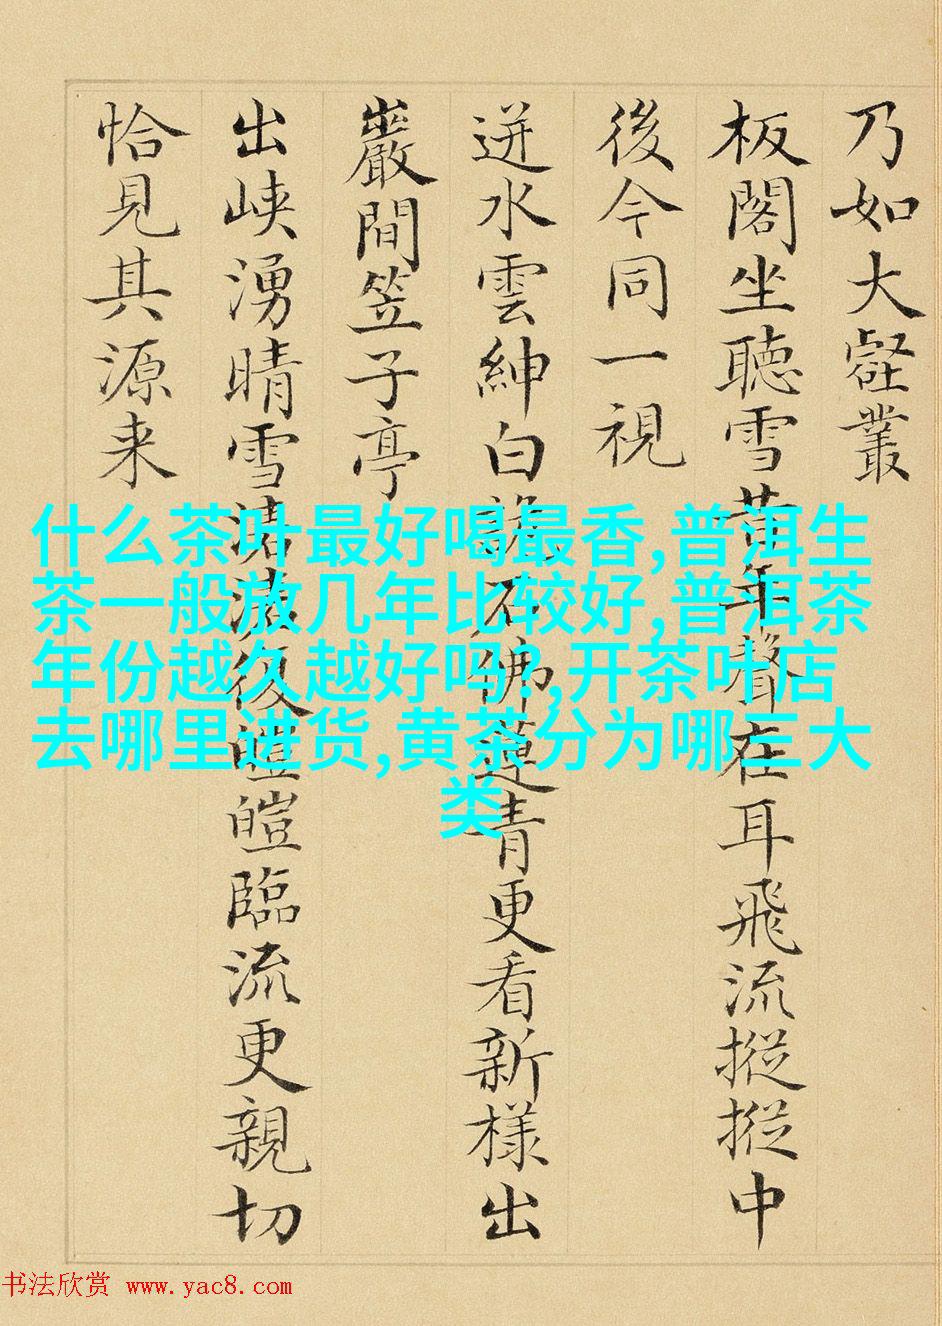 乃如大壑叢
板閣坐聽雪昔年聲在耳飛流摐摐中
後今同一視
迸水雲紳白石佛蓮青更看新樣出
巖間笠子亭
出峽湧晴雪復皚皚臨流更親切
恰見其源来
什么茶叶最好喝最香,普洱生
茶一般放几年比较好,普洱茶
年份越久越好吗?,开茶叶店
去哪里进货,黄茶分为哪三大
类
书法欣赏 www.yac8.com